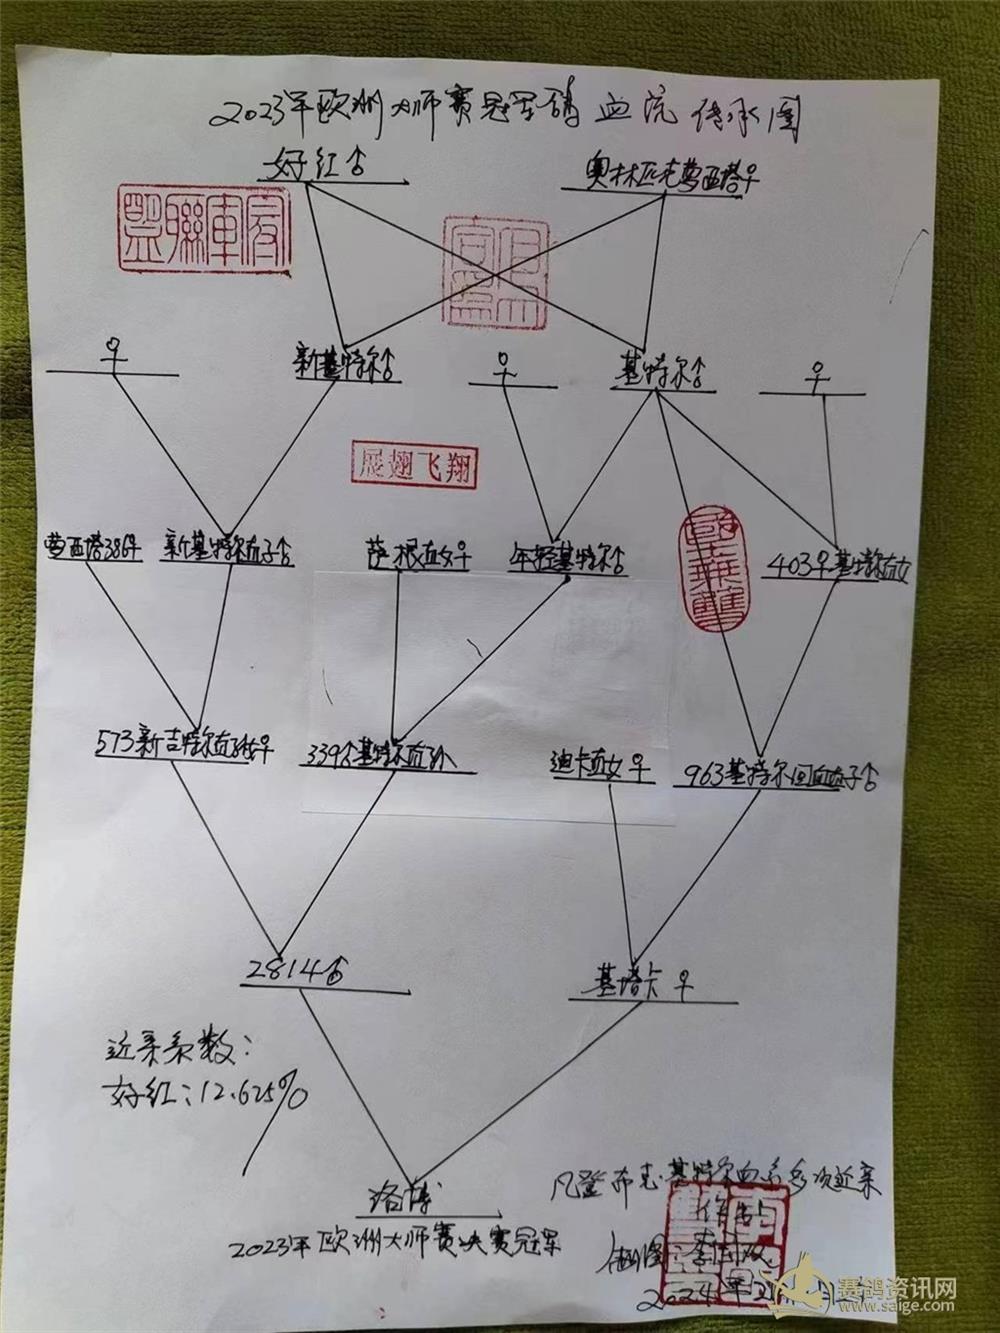 2023年欧洲大师赛冠军鸽血统传承图
好红♂
奥林匹克萝西塔♀
盟聯軍
♀
新基特尔♂
♀
基特尔♂
♀
展翅飞翔
萝西塔386♀
新基特尔直子♂
萨根直女♀
年轻基特尔♂
403♀基特尔直女
573新吉特尔直孙女♀
339♂基特尔直孙
迪卡直女♀
963基特尔回血直子♂
2814♂
基塔卡♀
近亲系数：
好红：12.625%
洛博
2023年欧洲大师赛决赛冠军
凡登布克·基特尔血系多次近亲
作出
2024年
赛鸽资讯网
www.saige.com